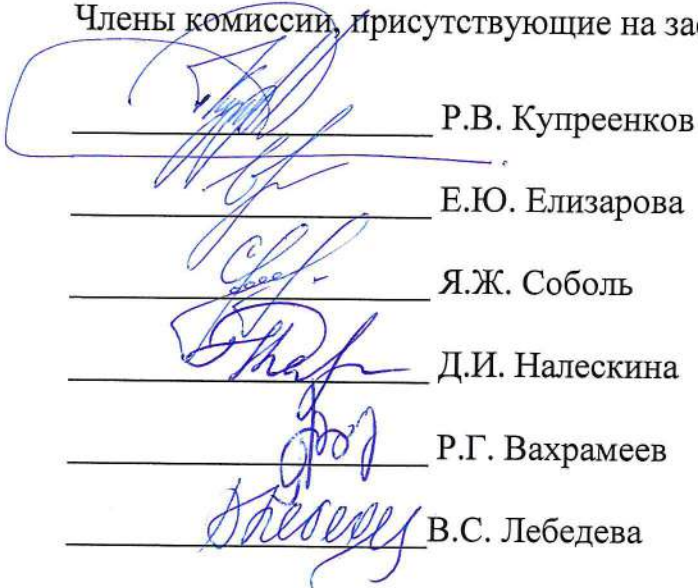 Члены комиссии, присутствующие на зас
Р.В. Купреенков
Е.Ю. Елизарова
Я.Ж. Соболь
Д.И. Налескина
Р.Г. Вахрамеев
В.С. Лебедева